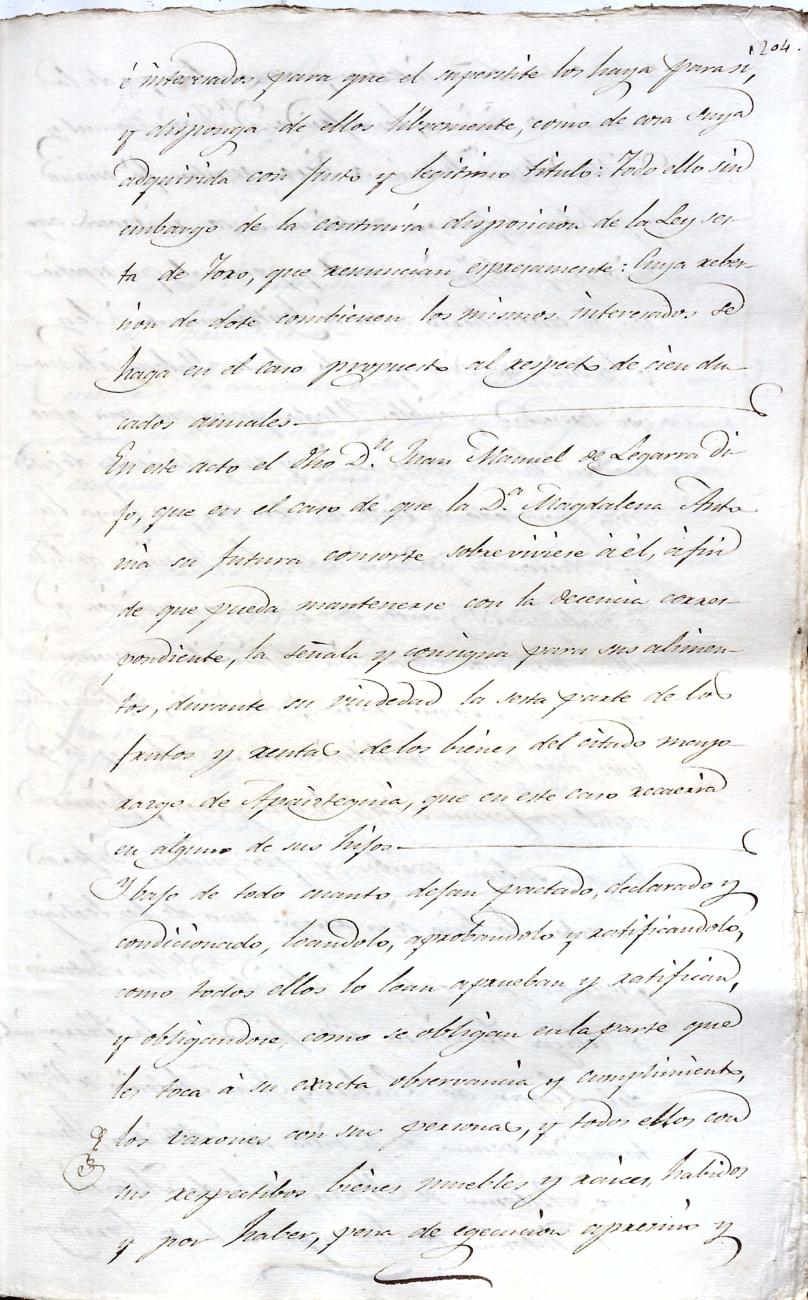 204.
é interesados, para que el superstite los haya para si,
y disponga de ellos libremente, como de cosa suya
adquirida con justo y legitimo titulo: Todo ello sin
embargo de la contraria disposicion de la Ley ses-
ta de Toro, que renuncian expresamente: Cuya reber-
sion de dote combienen los mismos interesados se
haga en el caso propuesto al respecto de cien du-
cados annales.
En este acto el dho D.n Juan Manuel de Legarra di-
jo, que en el caso de que la D.a Magdalena Anto-
nia su futura consorte sobreviviese à él, à fin
de que pueda mantenerse con la decencia corres-
pondiente, la señala y consigna para sus alimen-
tos, durante su viudedad la sesta parte de los
frutos y rentas de los bienes del citado mayo-
razgo de Apaiztegina, que en este caso recaeria
en alguno de sus hijos.
Y bajo de todo cuanto dejan pactado, declarado y
condicionado, loandolo, aprobandolo y ratificandolo,
como todos ellos lo loan aprueban y ratifican,
y obligandose, como se obligan en la parte que
les toca à su exacta observancia y cumplimiento,
los varones con sus personas, y todos ellos con
sus respectibos bienes muebles y raices, habidos
y por haber, pena de egecucion apremio y